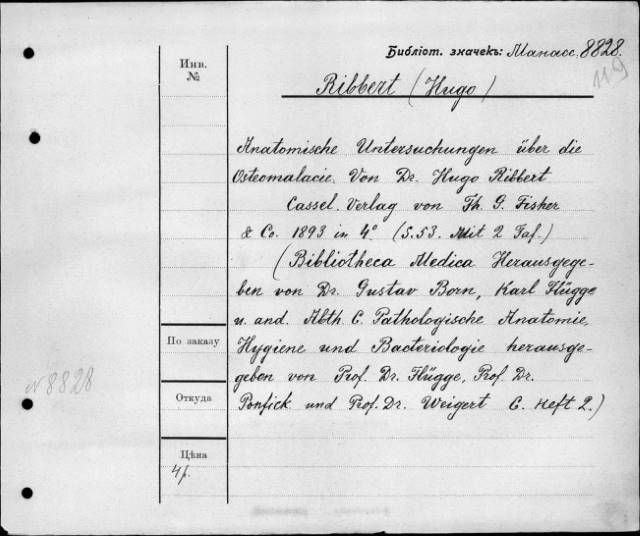 Библіот. значекъ: Манасс. 8828.
119
Инв.
№
Ribbert (Hugo)
Anatomische Untersuchungen über die
Osteomalacie. Von Dr. Hugo Ribbert
Cassel. Verlag von Th. G. Fisher
& Co. 1893 in 4° (S. 53. Mit 2 Taf.)
(Bibliotheca Medica Herausgege-
ben von Dr. Gustav Born, Karl Flügge
u. and. Abth. C. Pathologische Anatomie,
Hygiene und Bacteriologie herausge-
geben von Prof. Dr. Flügge, Prof. Dr.
Ponfick und Prof. Dr. Weigert C. Heft 2.)
По заказу
№8828
Откуда
Цѣна
4 р.